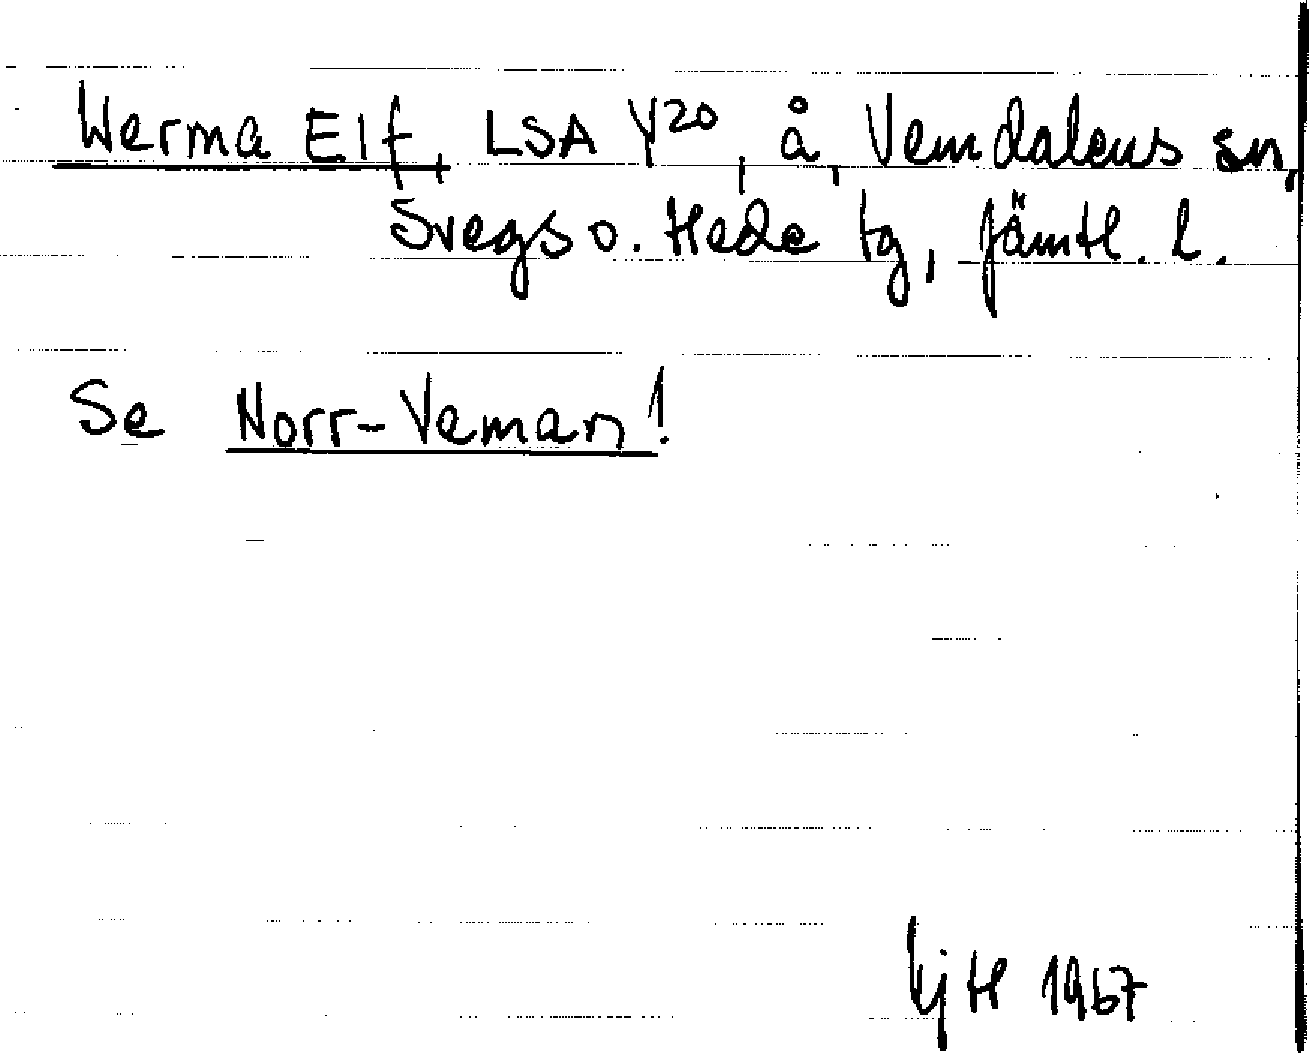 Werma Elf, LSA Y20, å, Vemdalens sn,
Svegs o. Hede tg, Jämtl. l.
Se Norr-Veman!
1967